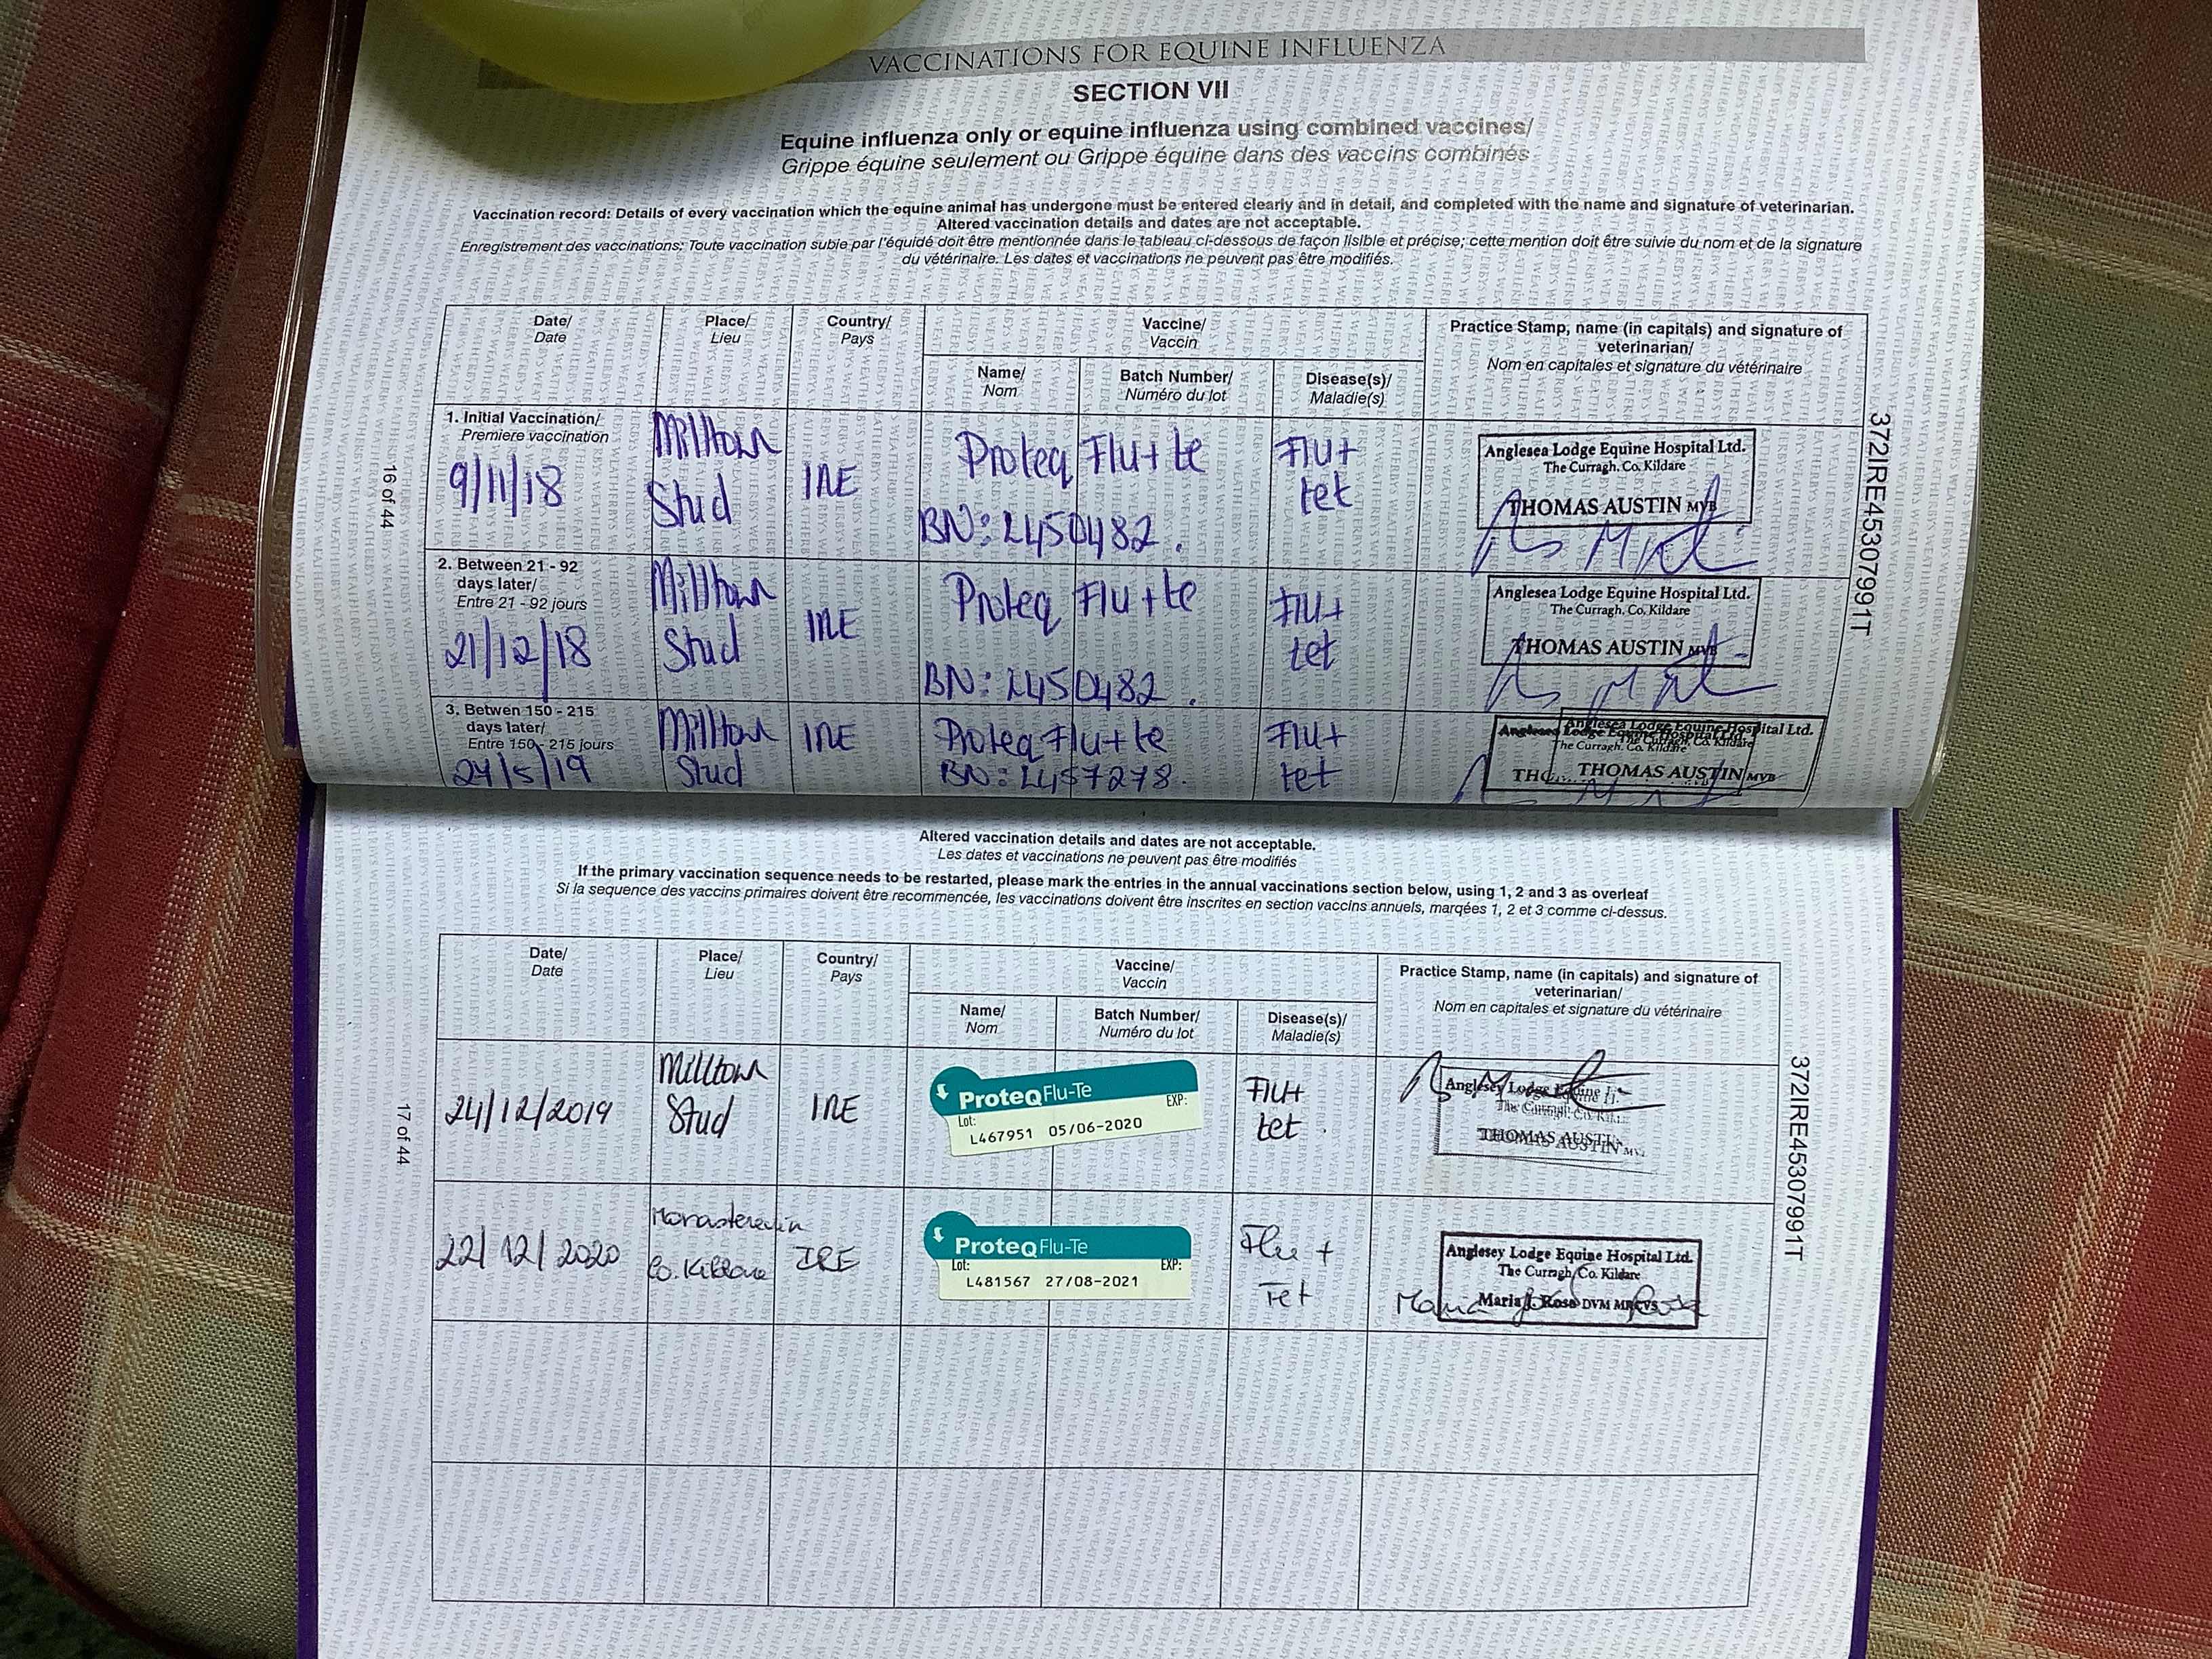 VACCINATIONS FOR EQUINE INFLUENZA
SECTION VII
Equine influenza only or equine influenza using combined vaccines/
Grippe équine seulement ou Grippe équine dans des vaccins combinés
Vaccination record: Details of every vaccination which the equine animal has undergone must be entered clearly and in detail, and completed with the name and signature of veterinarian.
Altered vaccination details and dates are not acceptable.
Enregistrement des vaccinations: Toute vaccination subie par l'équidé doit être mentionnée dans le tableau ci-dessous de façon lisible et précise; cette mention doit être suivie du nom et de la signature
du vétérinaire. Les dates et vaccinations ne peuvent pas être modifiés.
Date/
Date
Place/
Lieu
Country/
Pays
Vaccine/
Vaccin
Name/
Nom
Batch Number/
Numéro du lot
Disease(s)/
Maladie(s)
Practice Stamp, name (in capitals) and signature of
veterinarian/
Nom en capitales et signature du vétérinaire
1. Initial Vaccination/
Premiere vaccination
9/11/18
Milltown
Stud
IRE
Proteq Flu+te
BN: L450482.
Flu+
tet
Anglesea Lodge Equine Hospital Ltd.
The Curragh. Co. Kildare
THOMAS AUSTIN MVB
2. Between 21 - 92
days later/
Entre 21 - 92 jours
21/12/18
Milltown
Stud
IRE
Proteq Flu+te
BN: L450482.
Flu+
tet
Anglesea Lodge Equine Hospital Ltd.
The Curragh. Co. Kildare
THOMAS AUSTIN MVB
3. Betwen 150 - 215
days later/
Entre 150 - 215 jours
24/5/19
Milltown
Stud
IRE
Proteq Flu+te
BN: L457278.
Flu+
tet
Anglesea Lodge Equine Hospital Ltd.
The Curragh. Co. Kildare
THOMAS AUSTIN MVB
16 of 44
372IRE45307991T
Altered vaccination details and dates are not acceptable.
Les dates et vaccinations ne peuvent pas être modifiés
If the primary vaccination sequence needs to be restarted, please mark the entries in the annual vaccinations section below, using 1, 2 and 3 as overleaf
Si la sequence des vaccins primaires doivent être recommencée, les vaccinations doivent être inscrites en section vaccins annuels, marqées 1, 2 et 3 comme ci-dessus.
Date/
Date
Place/
Lieu
Country/
Pays
Vaccine/
Vaccin
Name/
Nom
Batch Number/
Numéro du lot
Disease(s)/
Maladie(s)
Practice Stamp, name (in capitals) and signature of
veterinarian/
Nom en capitales et signature du vétérinaire
24/12/2019
Milltown
Stud
IRE
ProteqFlu-Te
Lot: EXP:
L467951 05/06-2020
Flu+
tet.
Anglesey Lodge Equine
The Curragh. Co. Kil
THOMAS AUSTIN
22/12/2020
Monasterevin
Co. Kildare
IRE
ProteqFlu-Te
Lot: EXP:
L481567 27/08-2021
Flu +
Tet
Anglesey Lodge Equine Hospital Ltd.
The Curragh, Co. Kildare
Maria J. Rosa DVM MRCVS
17 of 44
372IRE45307991T